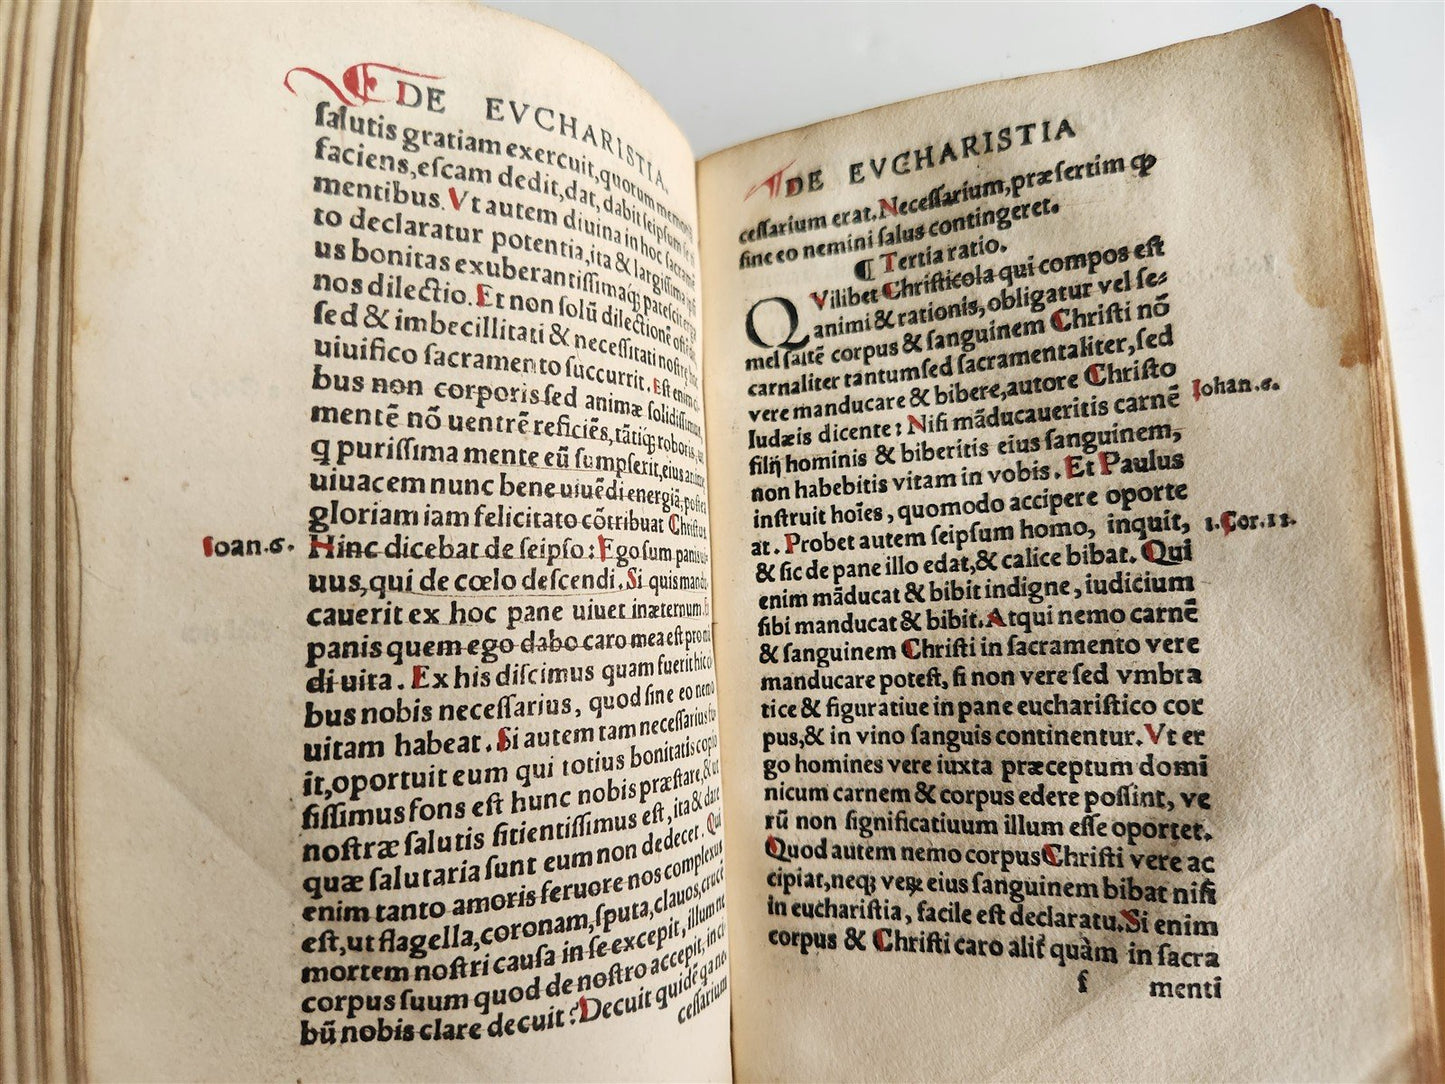 DE EVCHARISTIA.
ſalutis gratiam exercuit, quorum memoriā
faciens, eſcam dedit, dat, dabit ſeipſum
mentibus. Vt autem diuina in hoc ſacramē
to declaratur potentia, ita & largiſſima ipſi
us bonitas exuberantiſſimaqꝫ pateſcit erga
nos dilectio. Et non ſolū dilectionē
ſed & imbecillitati & neceſſitati noſtre hoc
uiuifico ſacramento ſuccurrit. Eſt enim
bus non corporis ſed animæ ſolidiſſimus,
mentē nō uentrē reficiēs, tātiqꝫ roboris, ut
q puriſſima mente eū ſumpſerit, eius animę
uiuacem nunc bene uiuēdi energiā, poſtea
gloriam iam felicitato cōtribuat Chriſtus
Ioan.6.
Hinc dicebat de ſeipſo: Ego ſum panis ui
uus, qui de cœlo deſcendi. Si quis mandu
cauerit ex hoc pane uiuet in æternum. Et
panis quem ego dabo caro mea eſt pro mū
di uita. Ex his diſcimus quam fuerit hic ci
bus nobis neceſſarius, quod ſine eo nemo
uitam habeat. Si autem tam neceſſarius fu
it, oportuit eum qui totius bonitatis copio
ſiſſimus fons eſt hunc nobis præſtare, & ut
noſtræ ſalutis ſitientiſſimus eſt, ita & dare
quæ ſalutaria ſunt eum non dedecet. Qui
enim tanto amoris feruore nos complexus
eſt, ut flagella, coronam, ſputa, clauos, crucē
mortem noſtri cauſa in ſe excepit, illum ne
corpus ſuum quod de noſtro accepit, in ci
bū nobis clare decuit? Decuit quidē qa ne
ceſſarium
DE EVCHARISTIA
ceſſarium erat. Neceſſarium, præſertim cp
ſine eo nemini ſalus contingeret.
¶ Tertia ratio.
QVilibet Chriſticola qui compos eſt
animi & rationis, obligatur vel ſe⸗
mel ſaltē corpus & ſanguinem Chriſti nō
carnaliter tantum ſed ſacramentaliter, ſed
vere manducare & bibere, autore Chriſto
Iudæis dicente: Niſi māducaueritis carnē
Iohan.6.
filij hominis & biberitis eius ſanguinem,
non habebitis vitam in vobis. Et Paulus
inſtruit hoīes, quomodo accipere oporte
at. Probet autem ſeipſum homo, inquit,
1.Cor.11.
& ſic de pane illo edat, & calice bibat. Qui
enim māducat & bibit indigne, iudicium
ſibi manducat & bibit. Atqui nemo carnē
& ſanguinem Chriſti in ſacramento vere
manducare poteſt, ſi non vere ſed vmbra
tice & figuratiue in pane euchariſtico cor
pus, & in vino ſanguis continentur. Vt er
go homines vere iuxta præceptum domi
nicum carnem & corpus edere poſſint, ve
rū non ſignificatiuum illum eſſe oportet.
Quod autem nemo corpus Chriſti vere ac
cipiat, neqꝫ veꝝ eius ſanguinem bibat niſi
in euchariſtia, facile eſt declaratu. Si enim
corpus & Chriſti caro alir̄ quàm in ſacra
f
menti